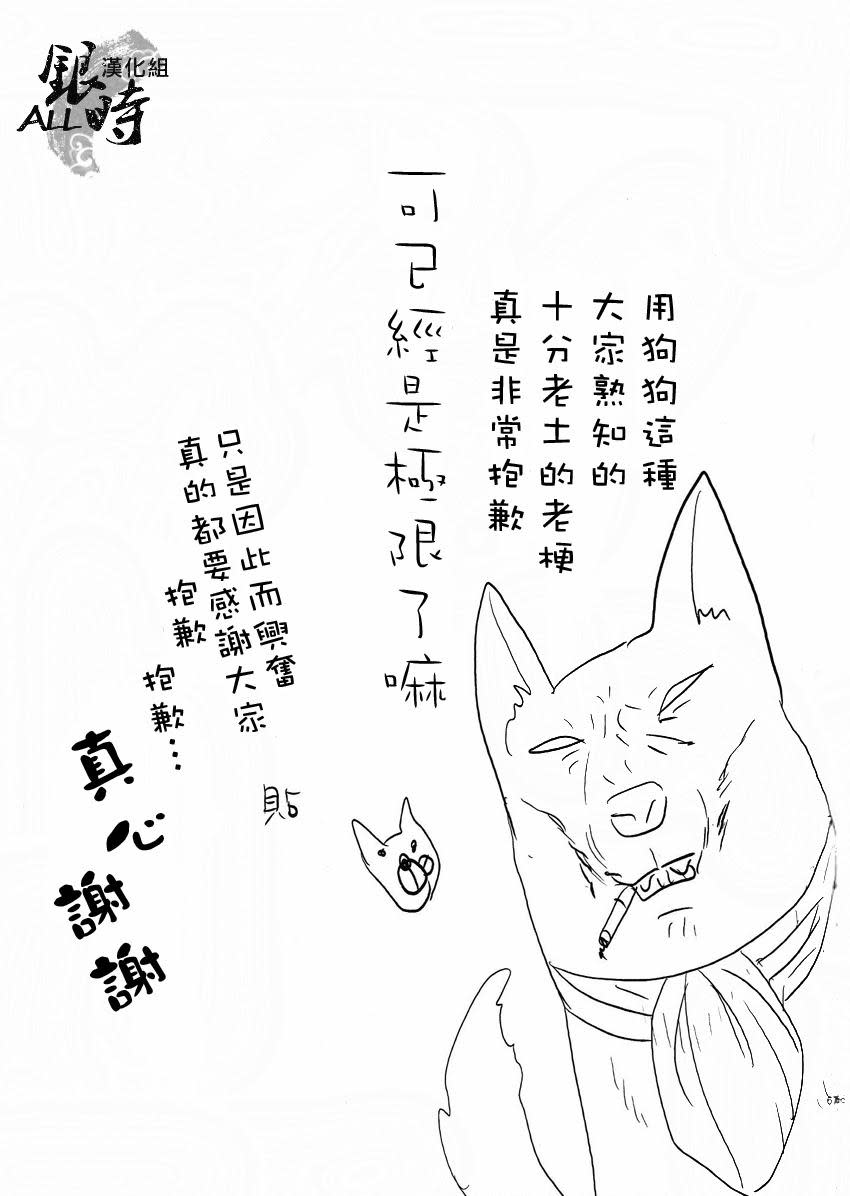 銀時
漢化組
ALL
用狗狗這種
大家熟知的
十分老土的老梗
真是非常抱歉
可已經是極限了嘛
只是因此而興奮
真的都要感謝大家
抱歉
抱歉…
真心謝謝
貼